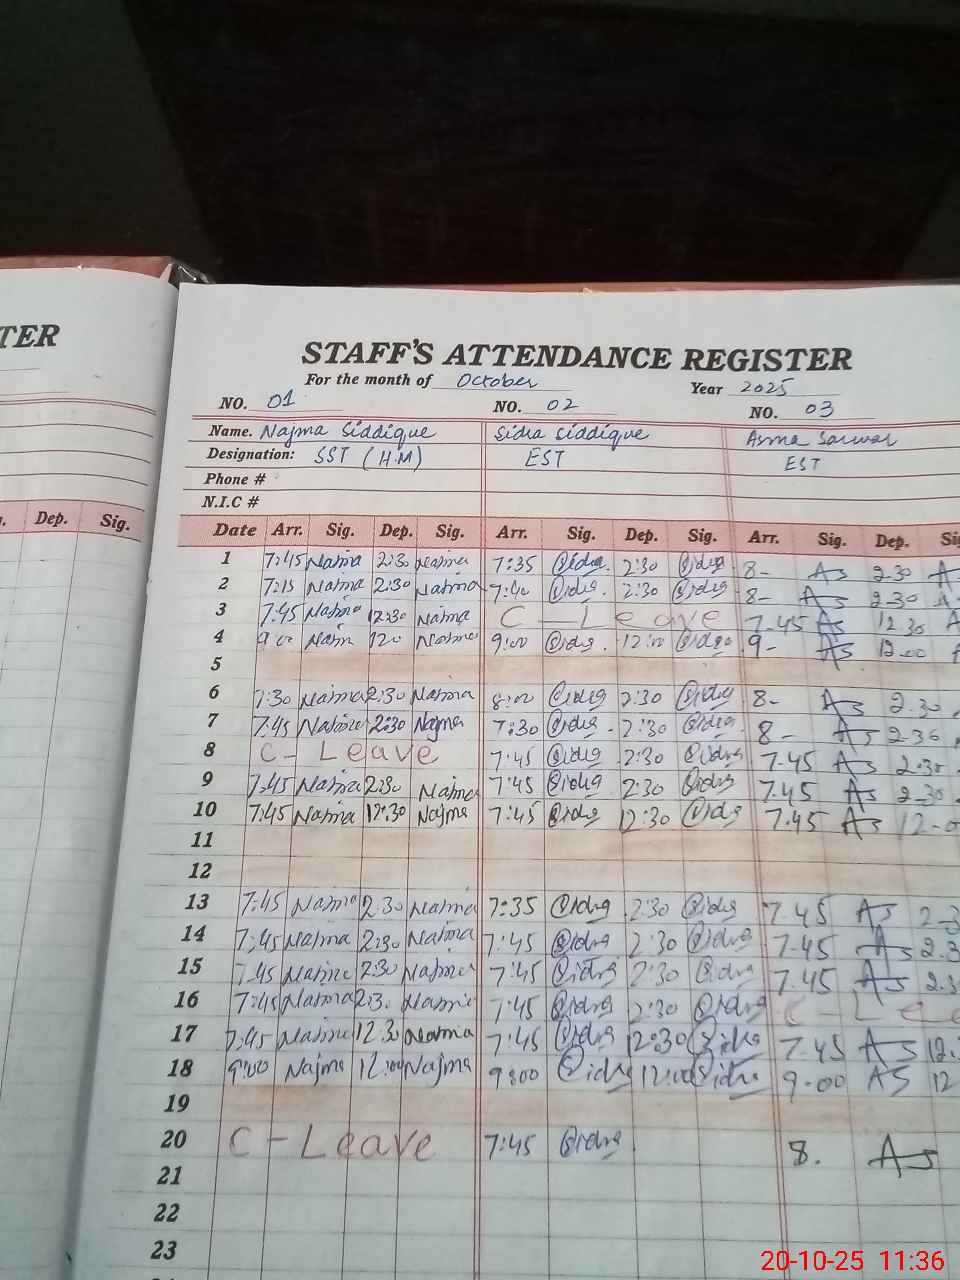 TER
STAFF'S ATTENDANCE REGISTER
For the month of October Year 2025
NO. 01 NO. 02 NO. 03
Name. Najma Siddique Sidra Siddique Asma Sarwar
Designation: SST (H.M) EST EST
Phone #
N.I.C #
Dep. Sig.
Date Arr. Sig. Dep. Sig. Arr. Sig. Dep. Sig. Arr. Sig. Dep.
1 7:45 Najma 2:30 Najma 7:35 Sidra 2:30 Sidra 8- As 2.30
2 7:15 Najma 2:30 Najma 7:40 Sidra 2:30 Sidra 8- As 2.30
3 7:45 Najma 12:30 Najma C - Leave 7.45 As 12.30
4 9:00 Najm 12:0 Najma 9:00 Sidra 12:00 Sidra 9- As 12.00
5
6 7:30 Najma 2:30 Najma 8:00 Sidra 2:30 Sidra 8- As 2.30
7 7:45 Najma 2:30 Najma 7:30 Sidra 2:30 Sidra 8- As 2.30
8 C - Leave 7:45 Sidra 2:30 Sidra 7.45 As 2.30
9 7:45 Najma 2:30 Najma 7:45 Sidra 2:30 Sidra 7.45 As 2.30
10 7:45 Najma 12:30 Najma 7:45 Sidra 12:30 Sidra 7.45 As
11
12
13 7:45 Najma 2:30 Najma 7:35 Sidra 2:30 Sidra 7.45 As
14 7:45 Najma 2:30 Najma 7:45 Sidra 2:30 Sidra 7.45 As
15 7:45 Najma 2:30 Najma 7:45 Sidra 2:30 Sidra 7.45 As
16 7:45 Najma 2:3 Najma 7:45 Sidra 2:30 Sidra C - Le
17 7:45 Najma 12:30 Najma 7:45 Sidra 12:30 Sidra 7.45 As
18 9:00 Najma 12:00 Najma 9:00 Sidra 12:00 Sidra 9.00 As 12
19
20 C - Leave 7:45 Sidra 8. As
21
22
23
20-10-25 11:36